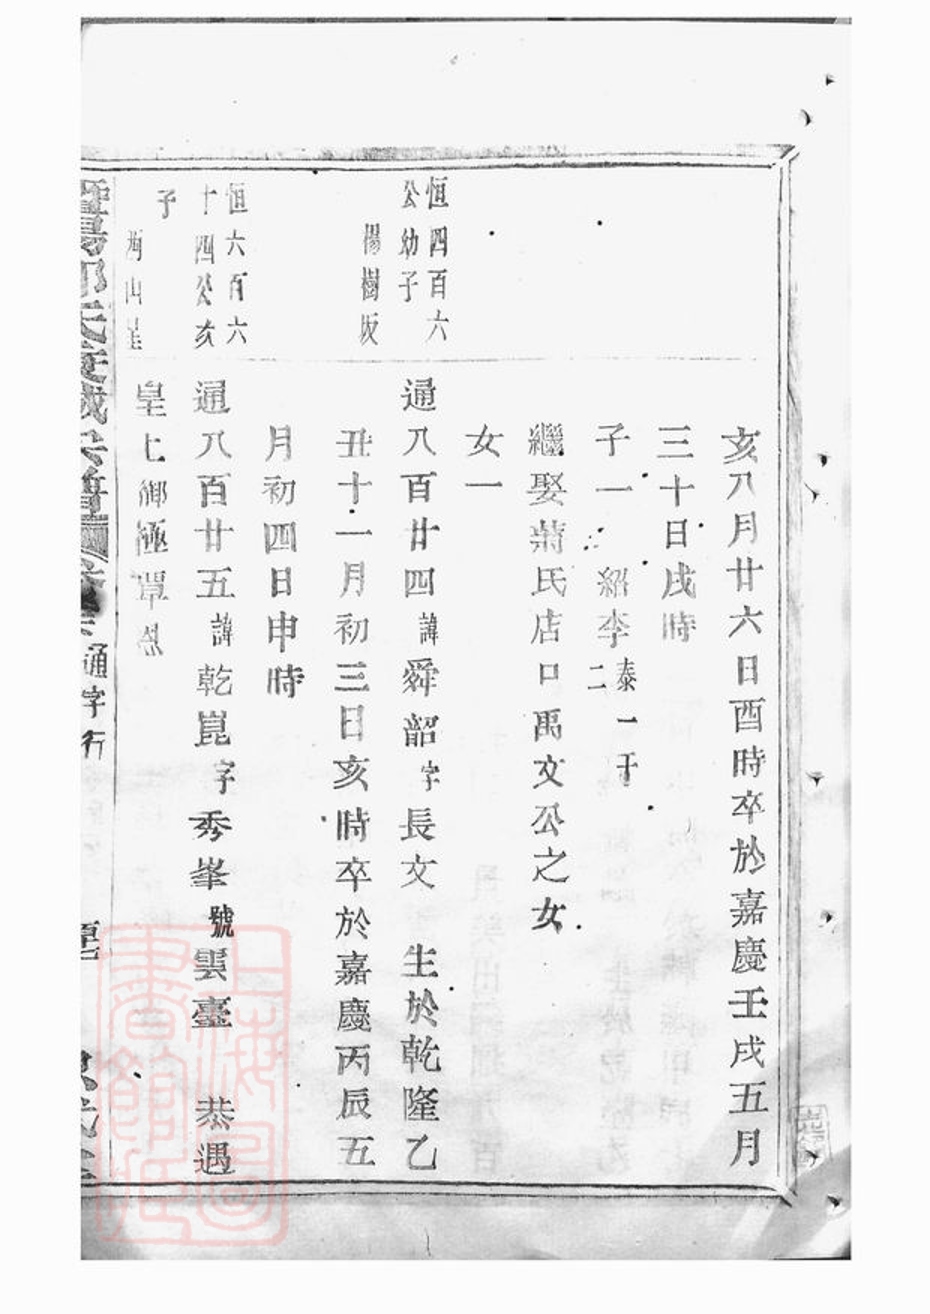 亥八月廿六日酉時卒於嘉慶壬戌五月
三十日戌時
子一 紹李泰一千二
繼娶蔣氏店口禹文公之女
女一
恒四百六
公幼子
楊樹坂
通八百廿四諱舜韶字長文 生於乾隆乙
丑十一月初三日亥時卒於嘉慶丙辰五
月初四日申時
恒六百六
十四公亥
子
通八百廿五諱乾崑字秀峯號雲臺 恭遇
皇上御極覃恩
通字行